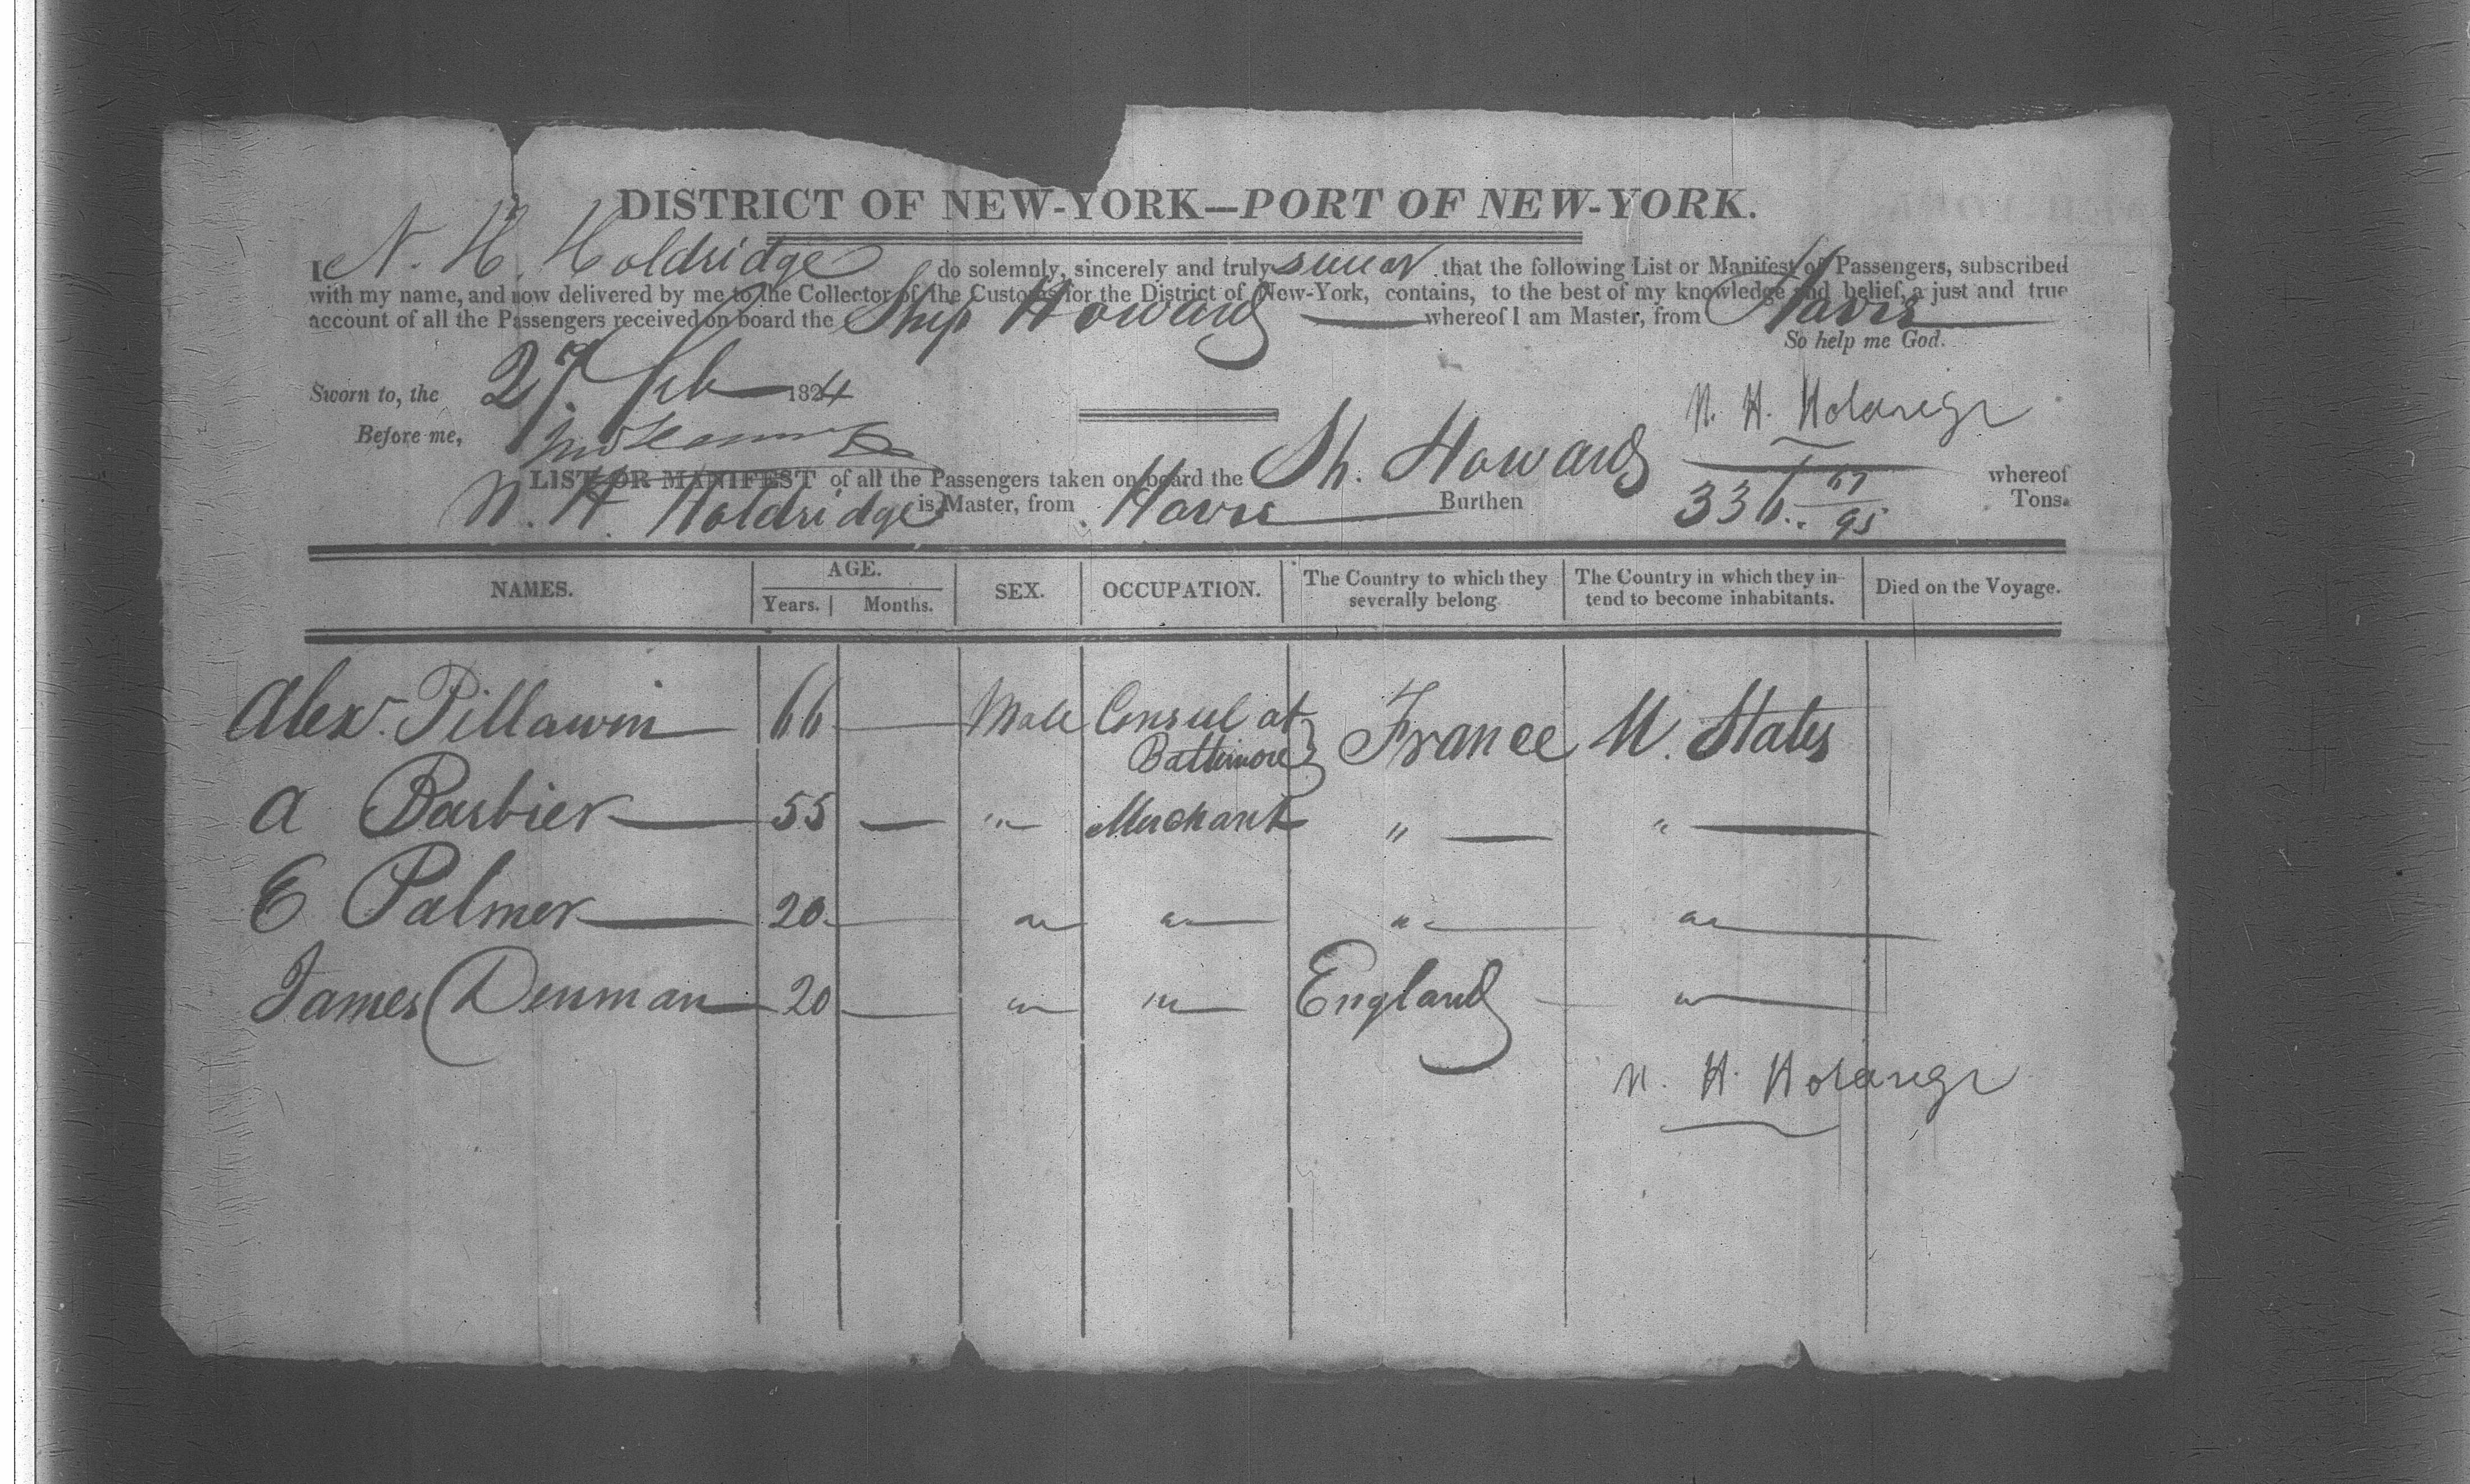 DISTRICT OF NEW-YORK—PORT OF NEW-YORK.
I N. H. Holdridge do solemnly, sincerely and truly swear that the following List or Manifest of Passengers, subscribed
with my name, and now delivered by me to the Collector of the Customs for the District of New-York, contains, to the best of my knowledge and belief, a just and true
account of all the Passengers received on board the Ship Howard whereof I am Master, from Havre
So help me God.
Sworn to, the 27 Feb 1824
N. H. Holdridge
Before me,
LIST OR MANIFEST of all the Passengers taken on board the Sh. Howard whereof
N. H. Holdridge is Master, from Havre Burthen 336.. 67/95 Tons.
NAMES. AGE. SEX. OCCUPATION. The Country to which they severally belong The Country in which they intend to become inhabitants. Died on the Voyage.
Years. Months.
Alex. Pillawin 66 — Male Consul at Baltimore } France U. States
A Barbier 55 — " Merchant " "
E Palmer 20 — " " " "
James Denman 20 — " " England "
N. H. Holdridge